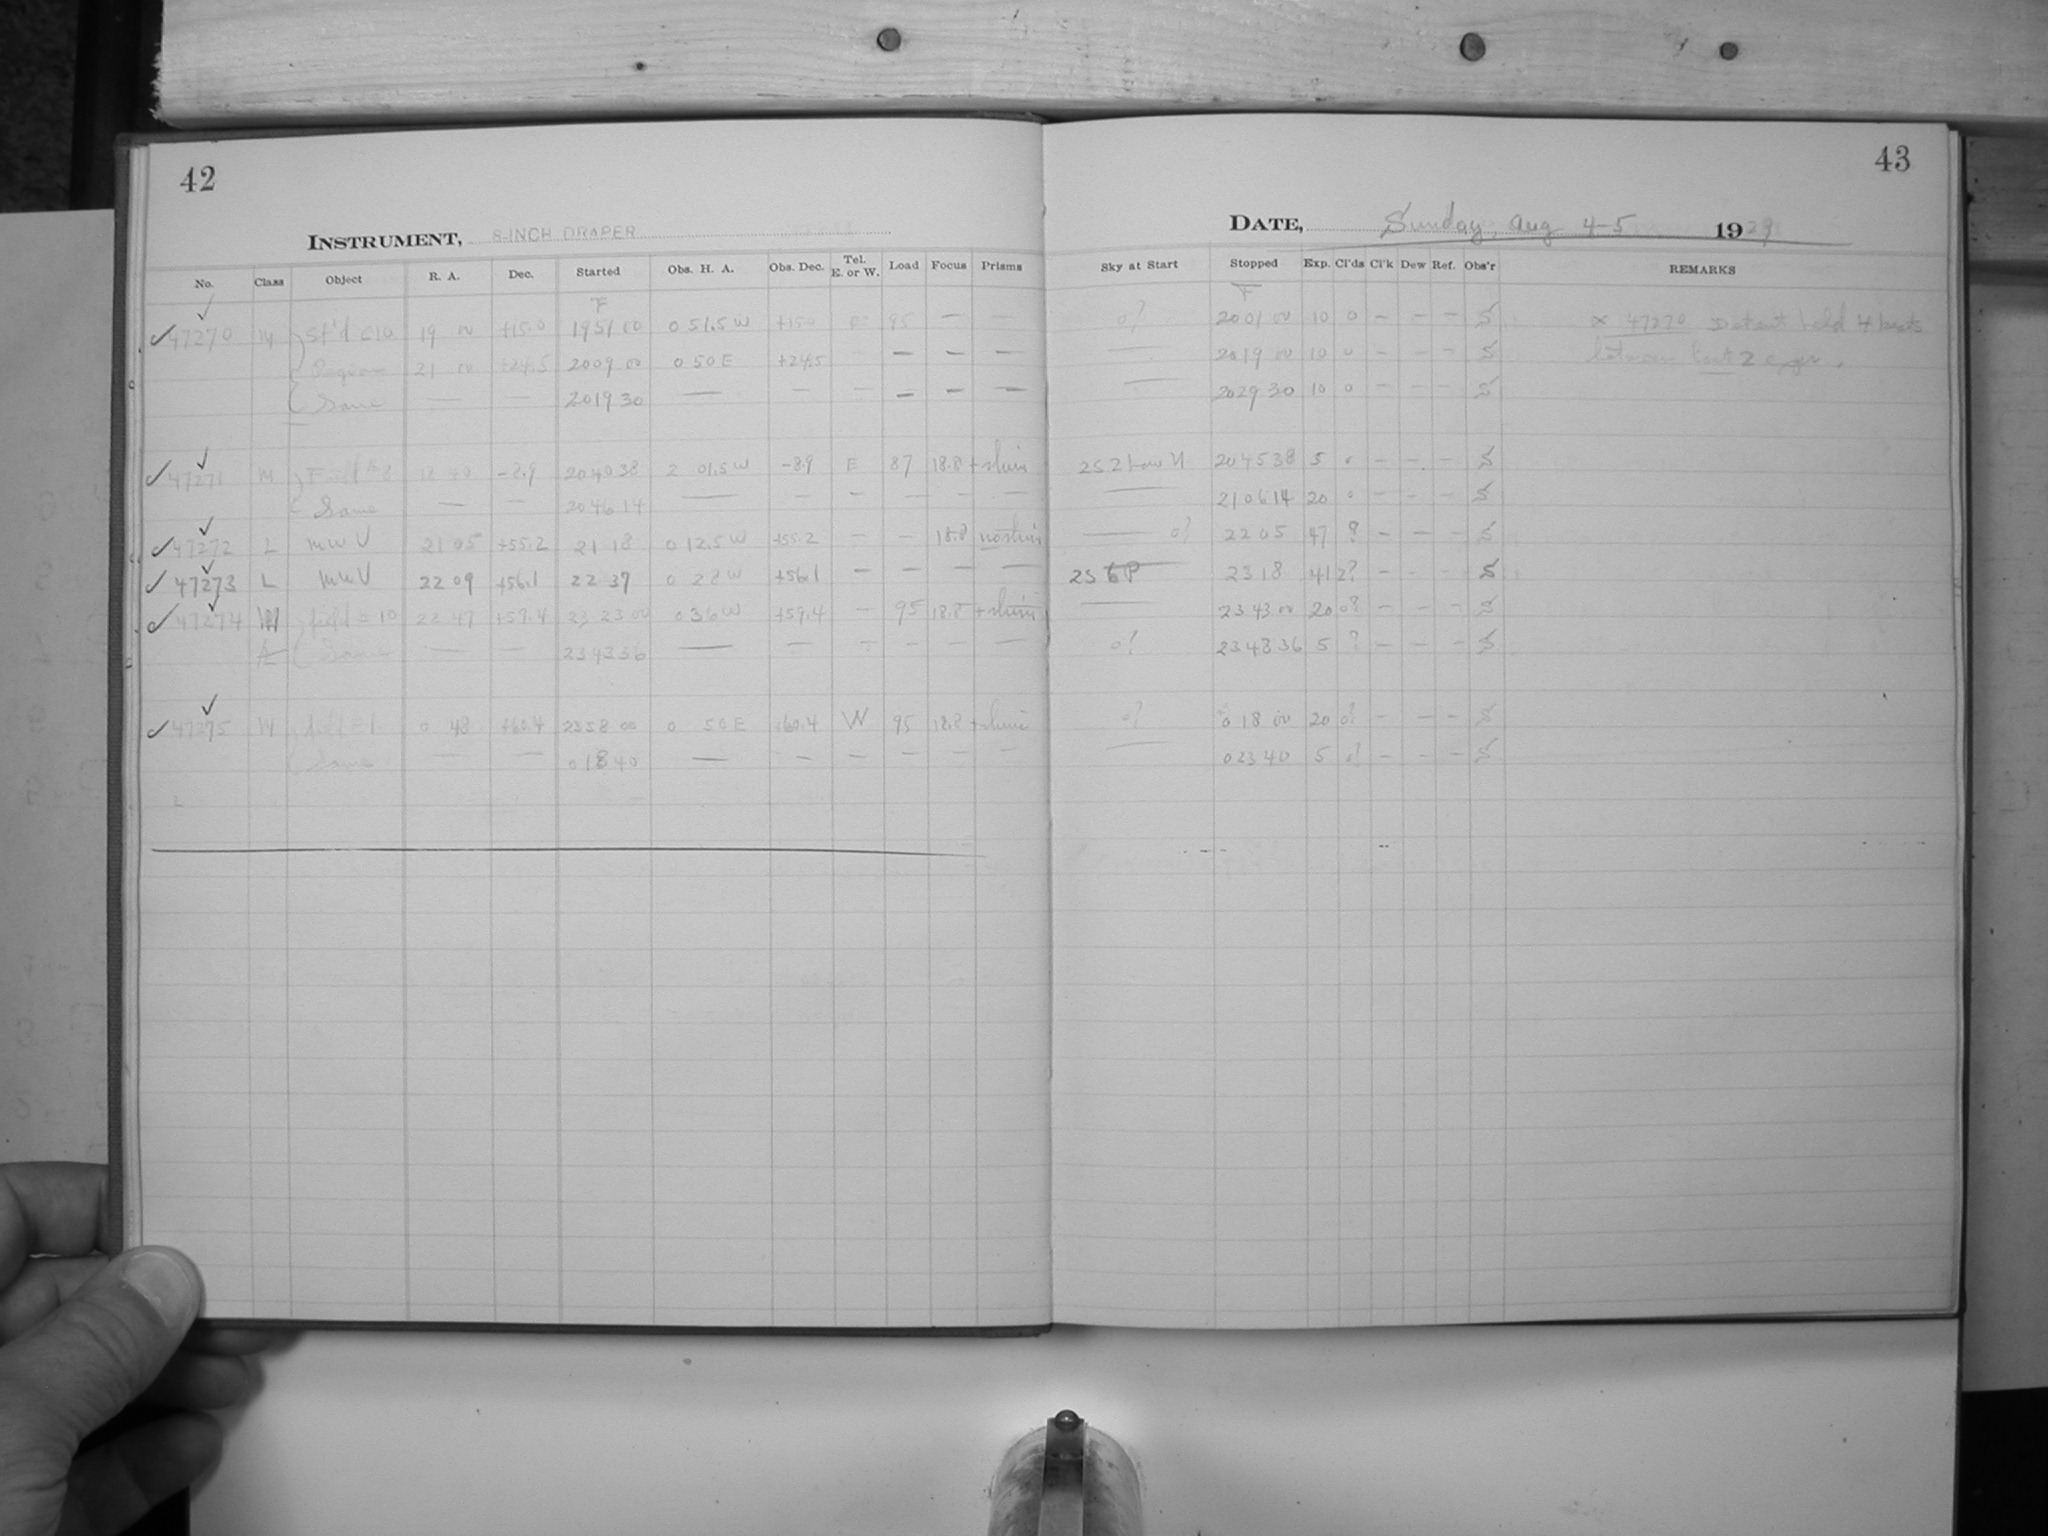 42
INSTRUMENT, 8-INCH DRAPER
No. Class Object R. A. Dec. Started Obs. H. A. Obs. Dec. Tel. E. or W. Load Focus Prisms
F
47270 M St'd C10 19 00 +15.0 1951 00 0 51.5 W +15.0 E 95 — —
21 00 +24.5 2009 00 0 50 E +24.5 — — —
Same — — 2019 30 — — — — — —
47271 M -8.9 204038 2 01.5 W -8.9 E 87 18.8
Same — — 204614 — — — — — —
47272 L MWV 21 05 +55.2 21 18 0 12.5 W +55.2 — — 18.8
47273 L MWV 22 09 +56.1 22 37 0 28 W +56.1 — — — —
47274 field #10 22 47 +59.4 23 23 00 0 36 W +59.4 — 95 18.8
A Same — — 234336 — — — — — —
47275 M 0 48 +60.4 2358 00 0 50 E +60.4 W 95 18.8
Same — — 01840 — — — — — —
43
DATE, Sunday, Aug 4-5 1929
Sky at Start Stopped Exp. Cl'ds Cl'k Dew Ref. Obs'r REMARKS
F
0? 2001 00 10 0 — — — S 47270 Detent held 4 beats
— 2019 00 10 0 — — — S between last 2 exps.
— 2029 30 10 0 — — — S
204538 5 0 — — — S
— 210614 20 0 — — — S
— 0? 22 05 47 ? — — — S
2S 6P 23 18 41 2? — — — S
— 2343 00 20 0? — — — S
0? 234836 5 ? — — — S
0? 0 18 00 20 0? — — — S
— 02340 5 0? — — — S